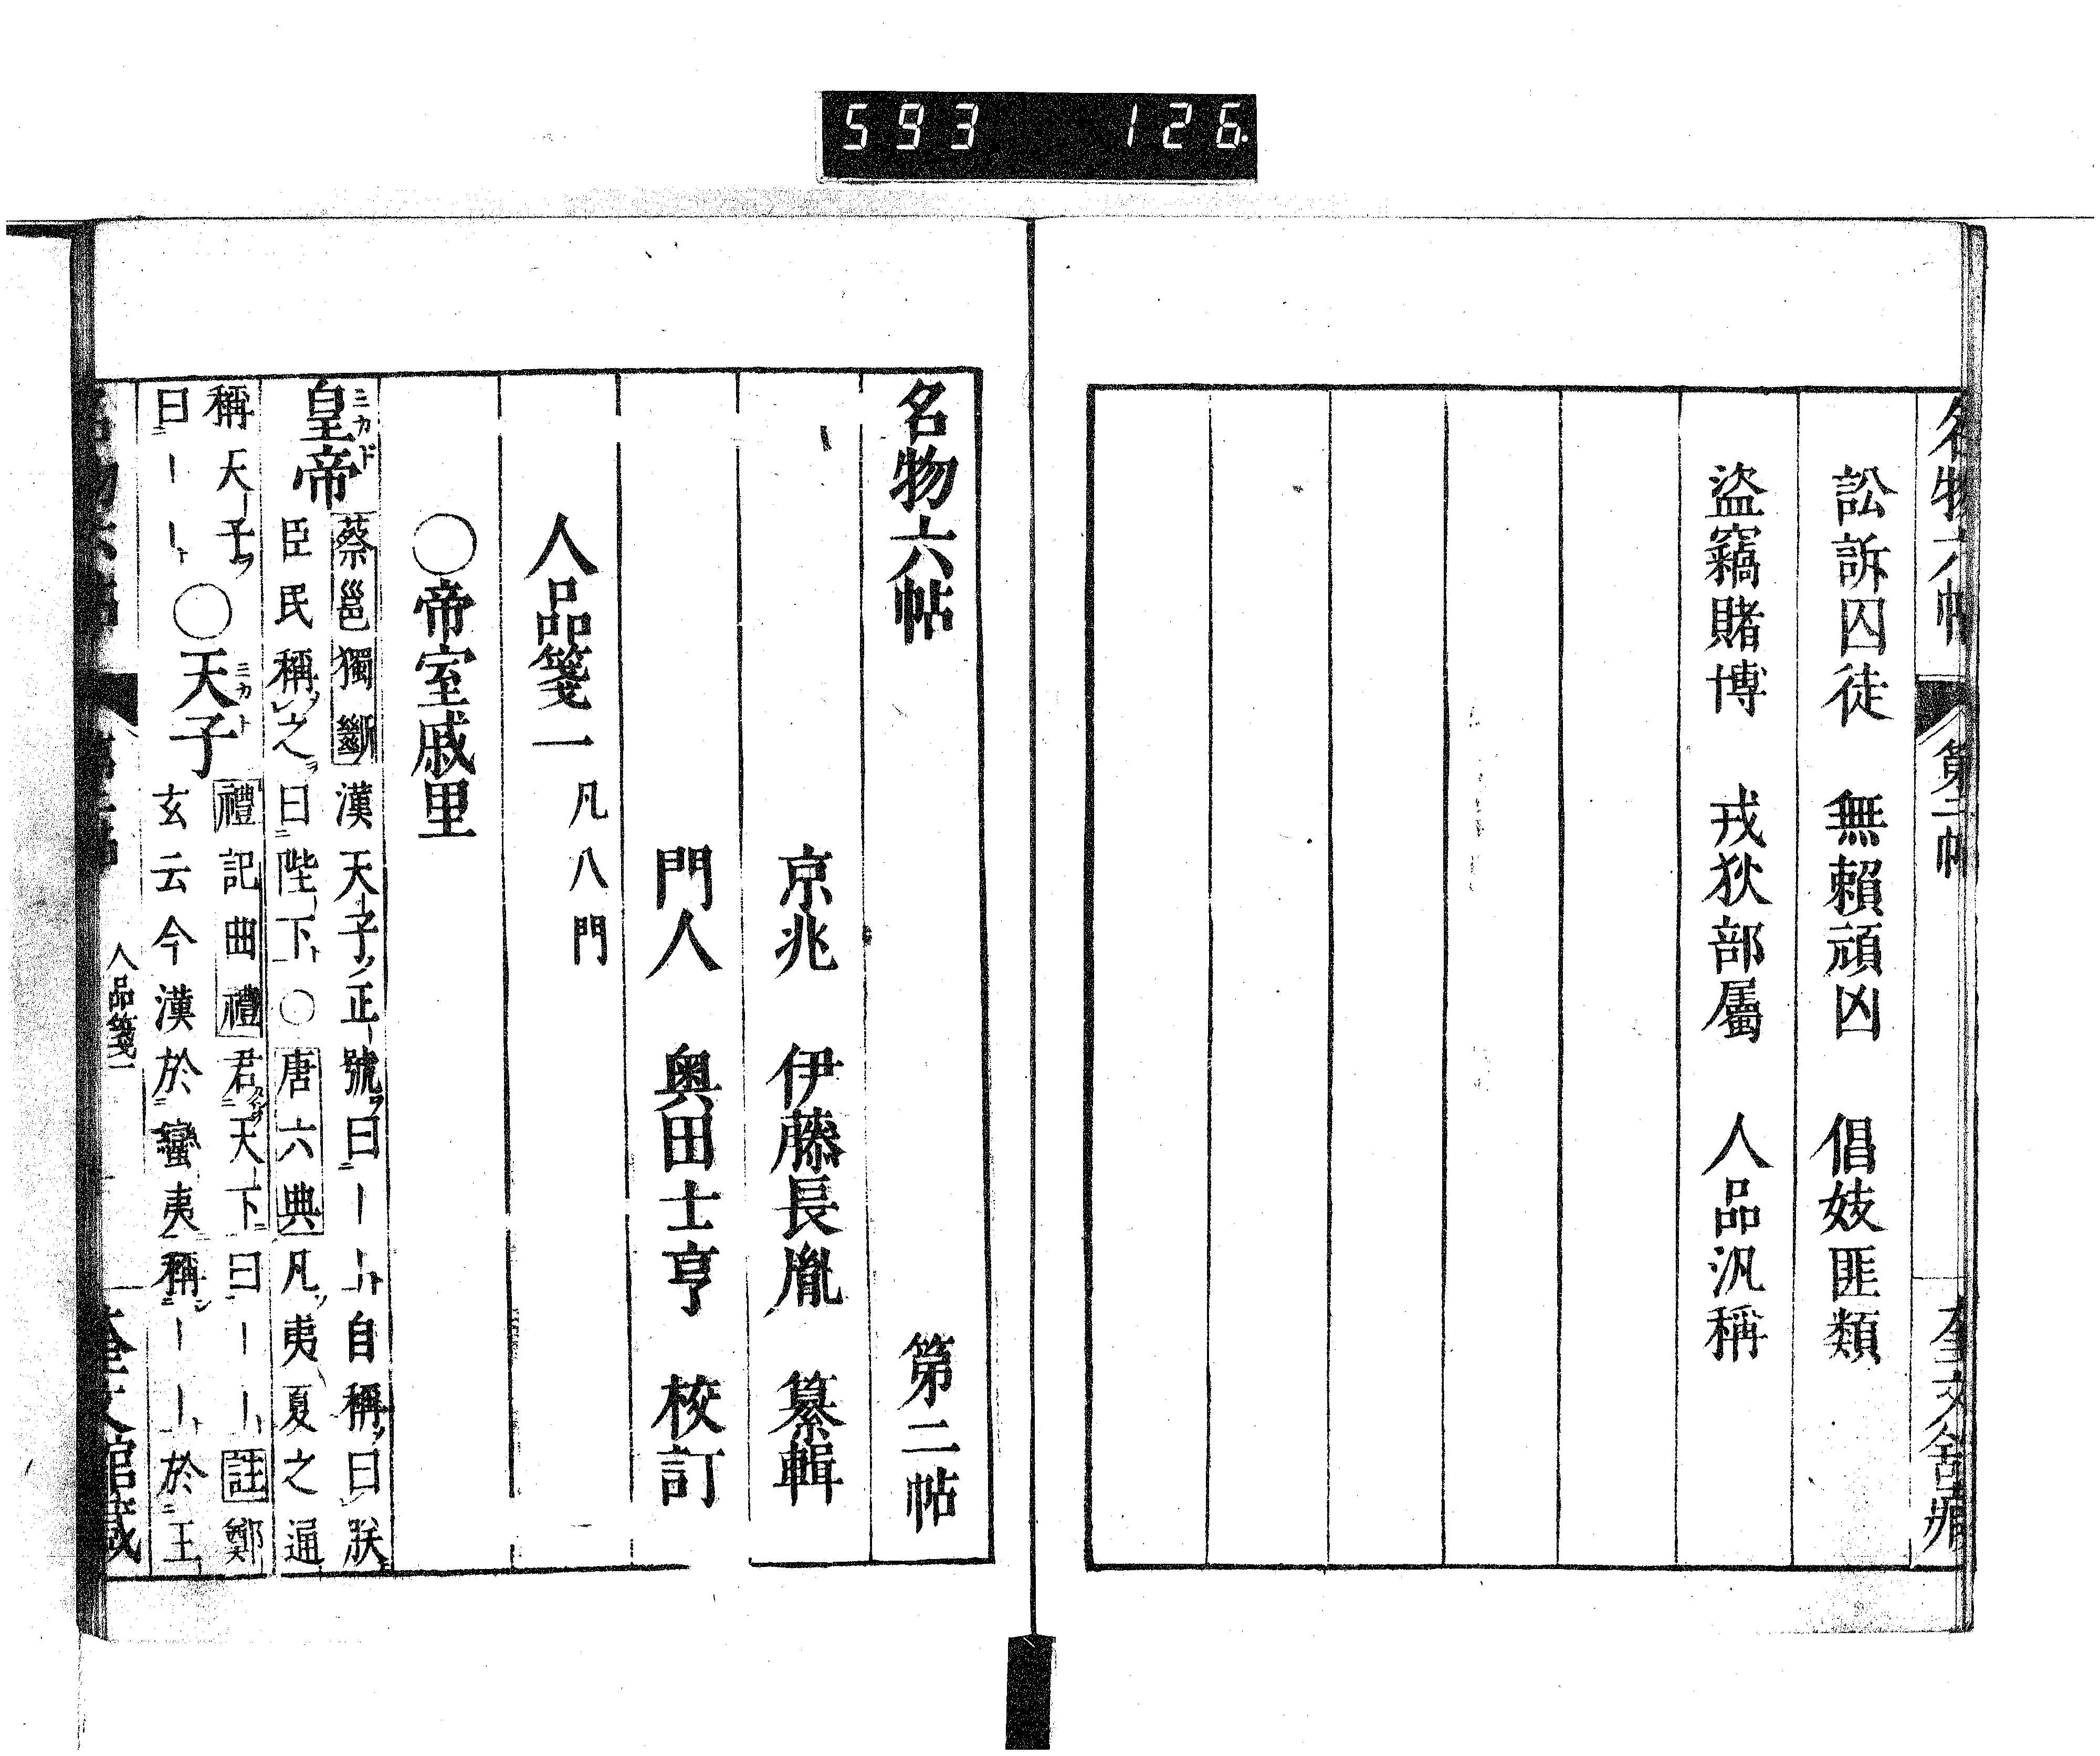 593 126
名物六帖 第二帖 奎文舘藏
訟訴囚徒 無賴頑凶 倡妓匪類
盜竊賭博 戎狄部屬 人品汎稱
名物六帖 第二帖
京兆 伊藤長胤 纂輯
門人 奥田士亨 校訂
人品箋一 凡八門
〇帝室戚里
皇帝 ミカド
蔡邕獨斷漢天子ノ正號ヲ曰〡〡ト自稱ノ曰朕
臣民稱之曰陛下ト〇唐六典凡夷夏之通
稱天子ヲ
曰〡〡ト〇
天子 ミカト
禮記曲禮君天下曰〡〡註鄭
玄云今漢於蠻夷稱〡〡ト於王
人品箋一
奎文舘藏